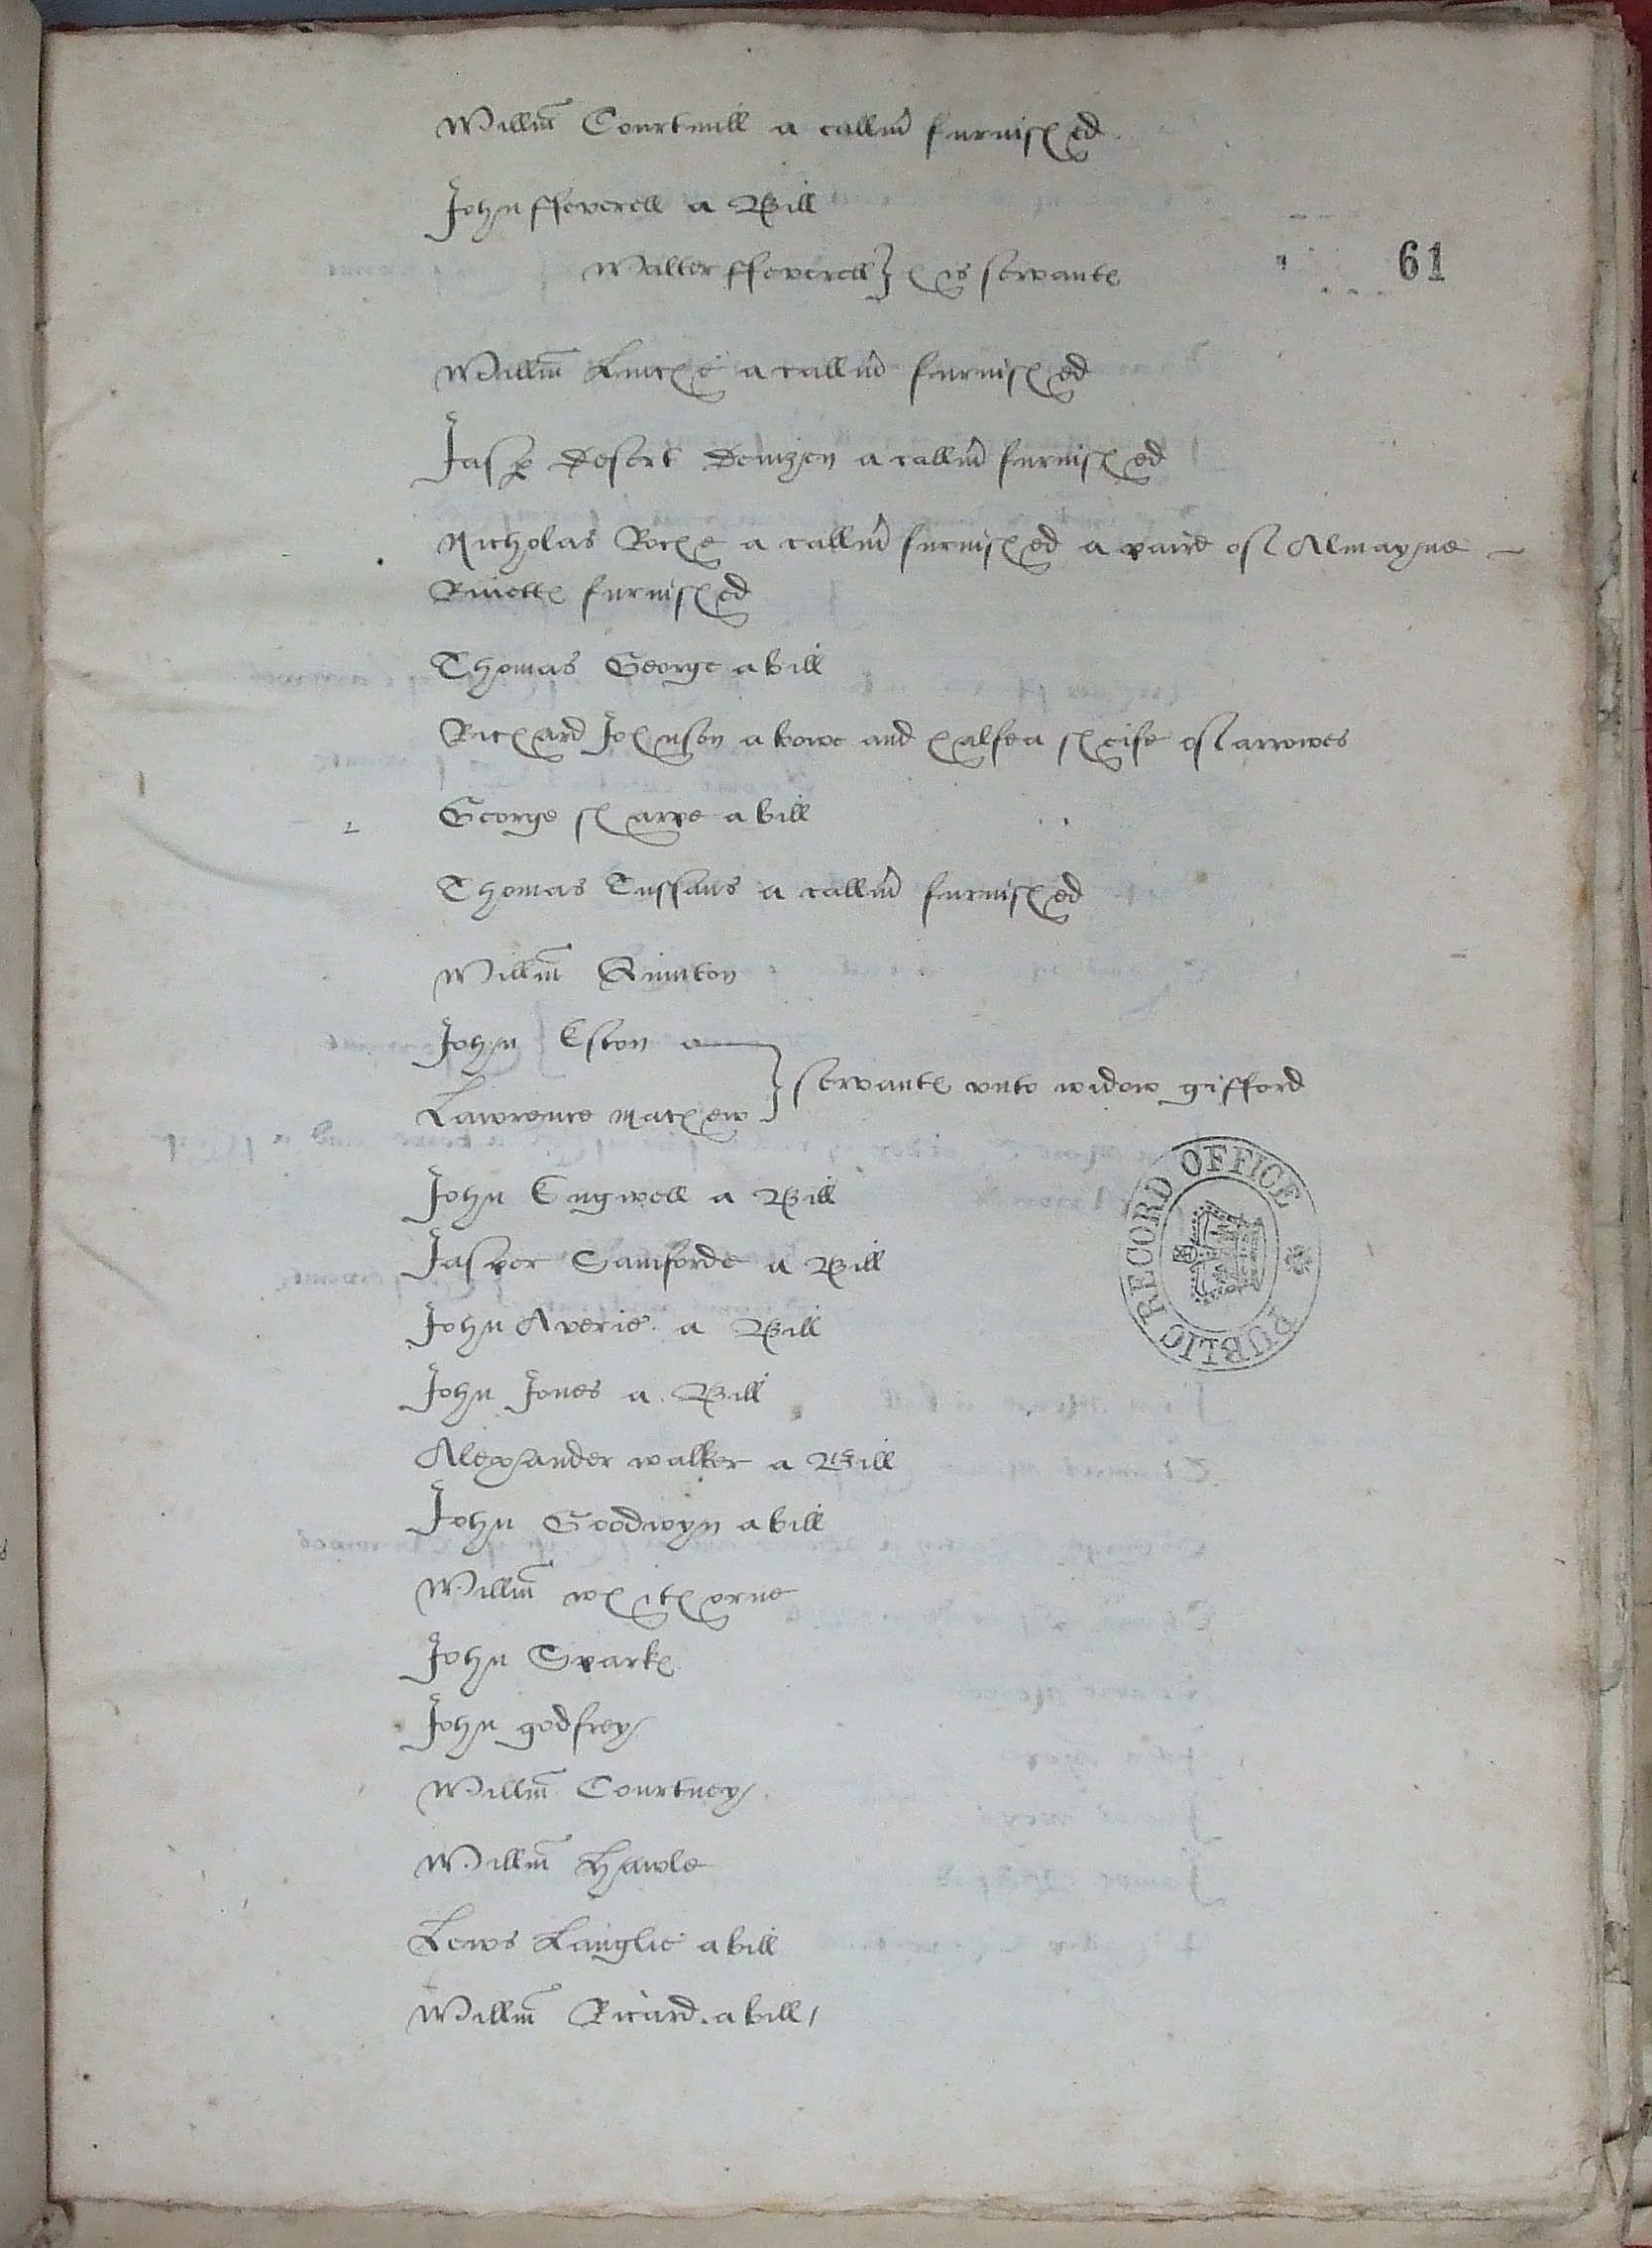 Willm Courtmill a callm furnished.
John ffeverell a Bill
Walter ffeverell} his servante
61
Willm Linche a callm furnished
Jasp Desert Denizen a callm furnished
Nicholas Roche a callm furnished a paire of Almayne
Rivette furnished
Thomas George a bill
Richard Johnson a bowe and halfe a sheife of arrowes
George sharpe a bill
Thomas Tussans a callm furnished
Willm Kimton
John Eston a
Lawrence mathew } servante vnto widow gifford
John Engwell a Bill
Jasper Samforde a Bill
PUBLIC RECORD OFFICE
John Averie a Bill
John Jones a Bill
Alexander walker a Bill
John Goodwyn a bill
Willm whithorne
John Sparke
John godfrey
Willm Courtney
Willm Hawle
Lews Langlie a bill
Willm Ricard. a bill/